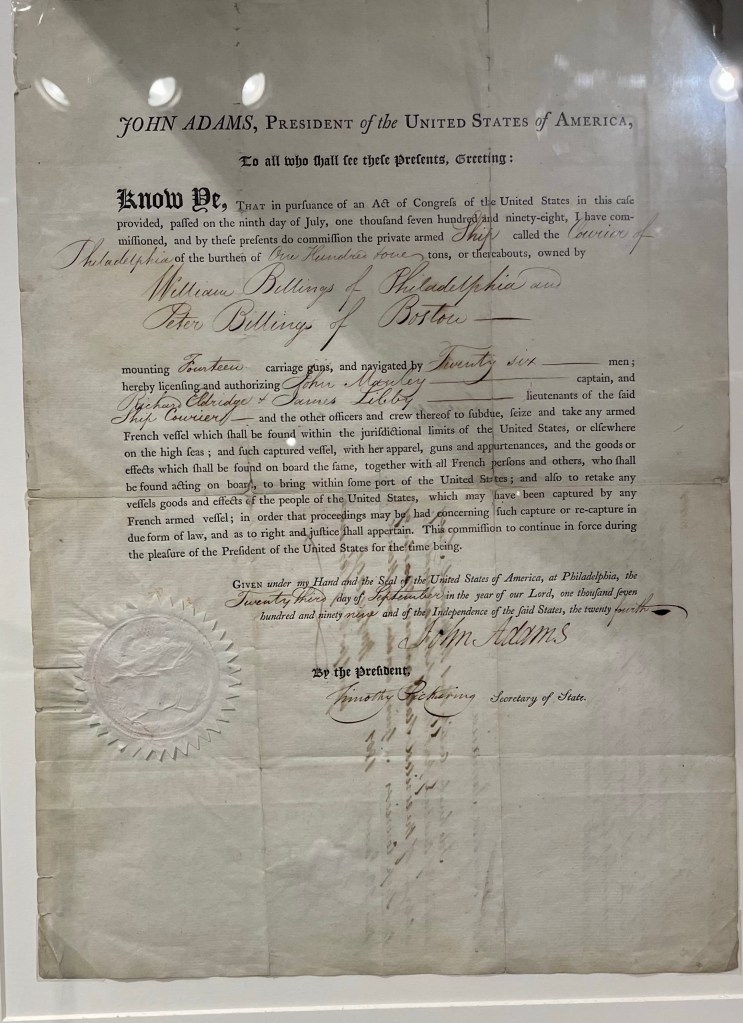 JOHN ADAMS, PRESIDENT of the UNITED STATES of AMERICA,
To all who ſhall ſee theſe Preſents, Greeting:
Know Ye, THAT in purſuance of an Act of Congreſs of the United States in this caſe
provided, paſſed on the ninth day of July, one thouſand ſeven hundred and ninety-eight, I have com-
miſſioned, and by theſe preſents do commiſſion the private armed Ship called the Courier of
Philadelphia of the burthen of One Hundred tons, or thereabouts, owned by
William Billings of Philadelphia and
Peter Billings of Boston
mounting Fourteen carriage guns, and navigated by Twenty six men;
hereby licenſing and authorizing John Manley captain, and
Richard Eldridge & James Libby lieutenants of the ſaid
Ship Courier and the other officers and crew thereof to ſubdue, ſeize and take any armed
French veſſel which ſhall be found within the juriſdictional limits of the United States, or elſewhere
on the high ſeas; and ſuch captured veſſel, with her apparel, guns and appurtenances, and the goods or
effects which ſhall be found on board the ſame, together with all French perſons and others, who ſhall
be found acting on board, to bring within ſome port of the United States; and alſo to retake any
veſſels goods and effects of the people of the United States, which may have been captured by any
French armed veſſel; in order that proceedings may be had concerning ſuch capture or re-capture in
due form of law, and as to right and juſtice ſhall appertain. This commiſſion to continue in force during
the pleaſure of the Preſident of the United States for the time being.
GIVEN under my Hand and the Seal of the United States of America, at Philadelphia, the
Twenty third day of September in the year of our Lord, one thouſand ſeven
hundred and ninety nine and of the Independence of the ſaid States, the twenty fourth
John Adams
By the Preſident,
Timothy Pickering Secretary of State.